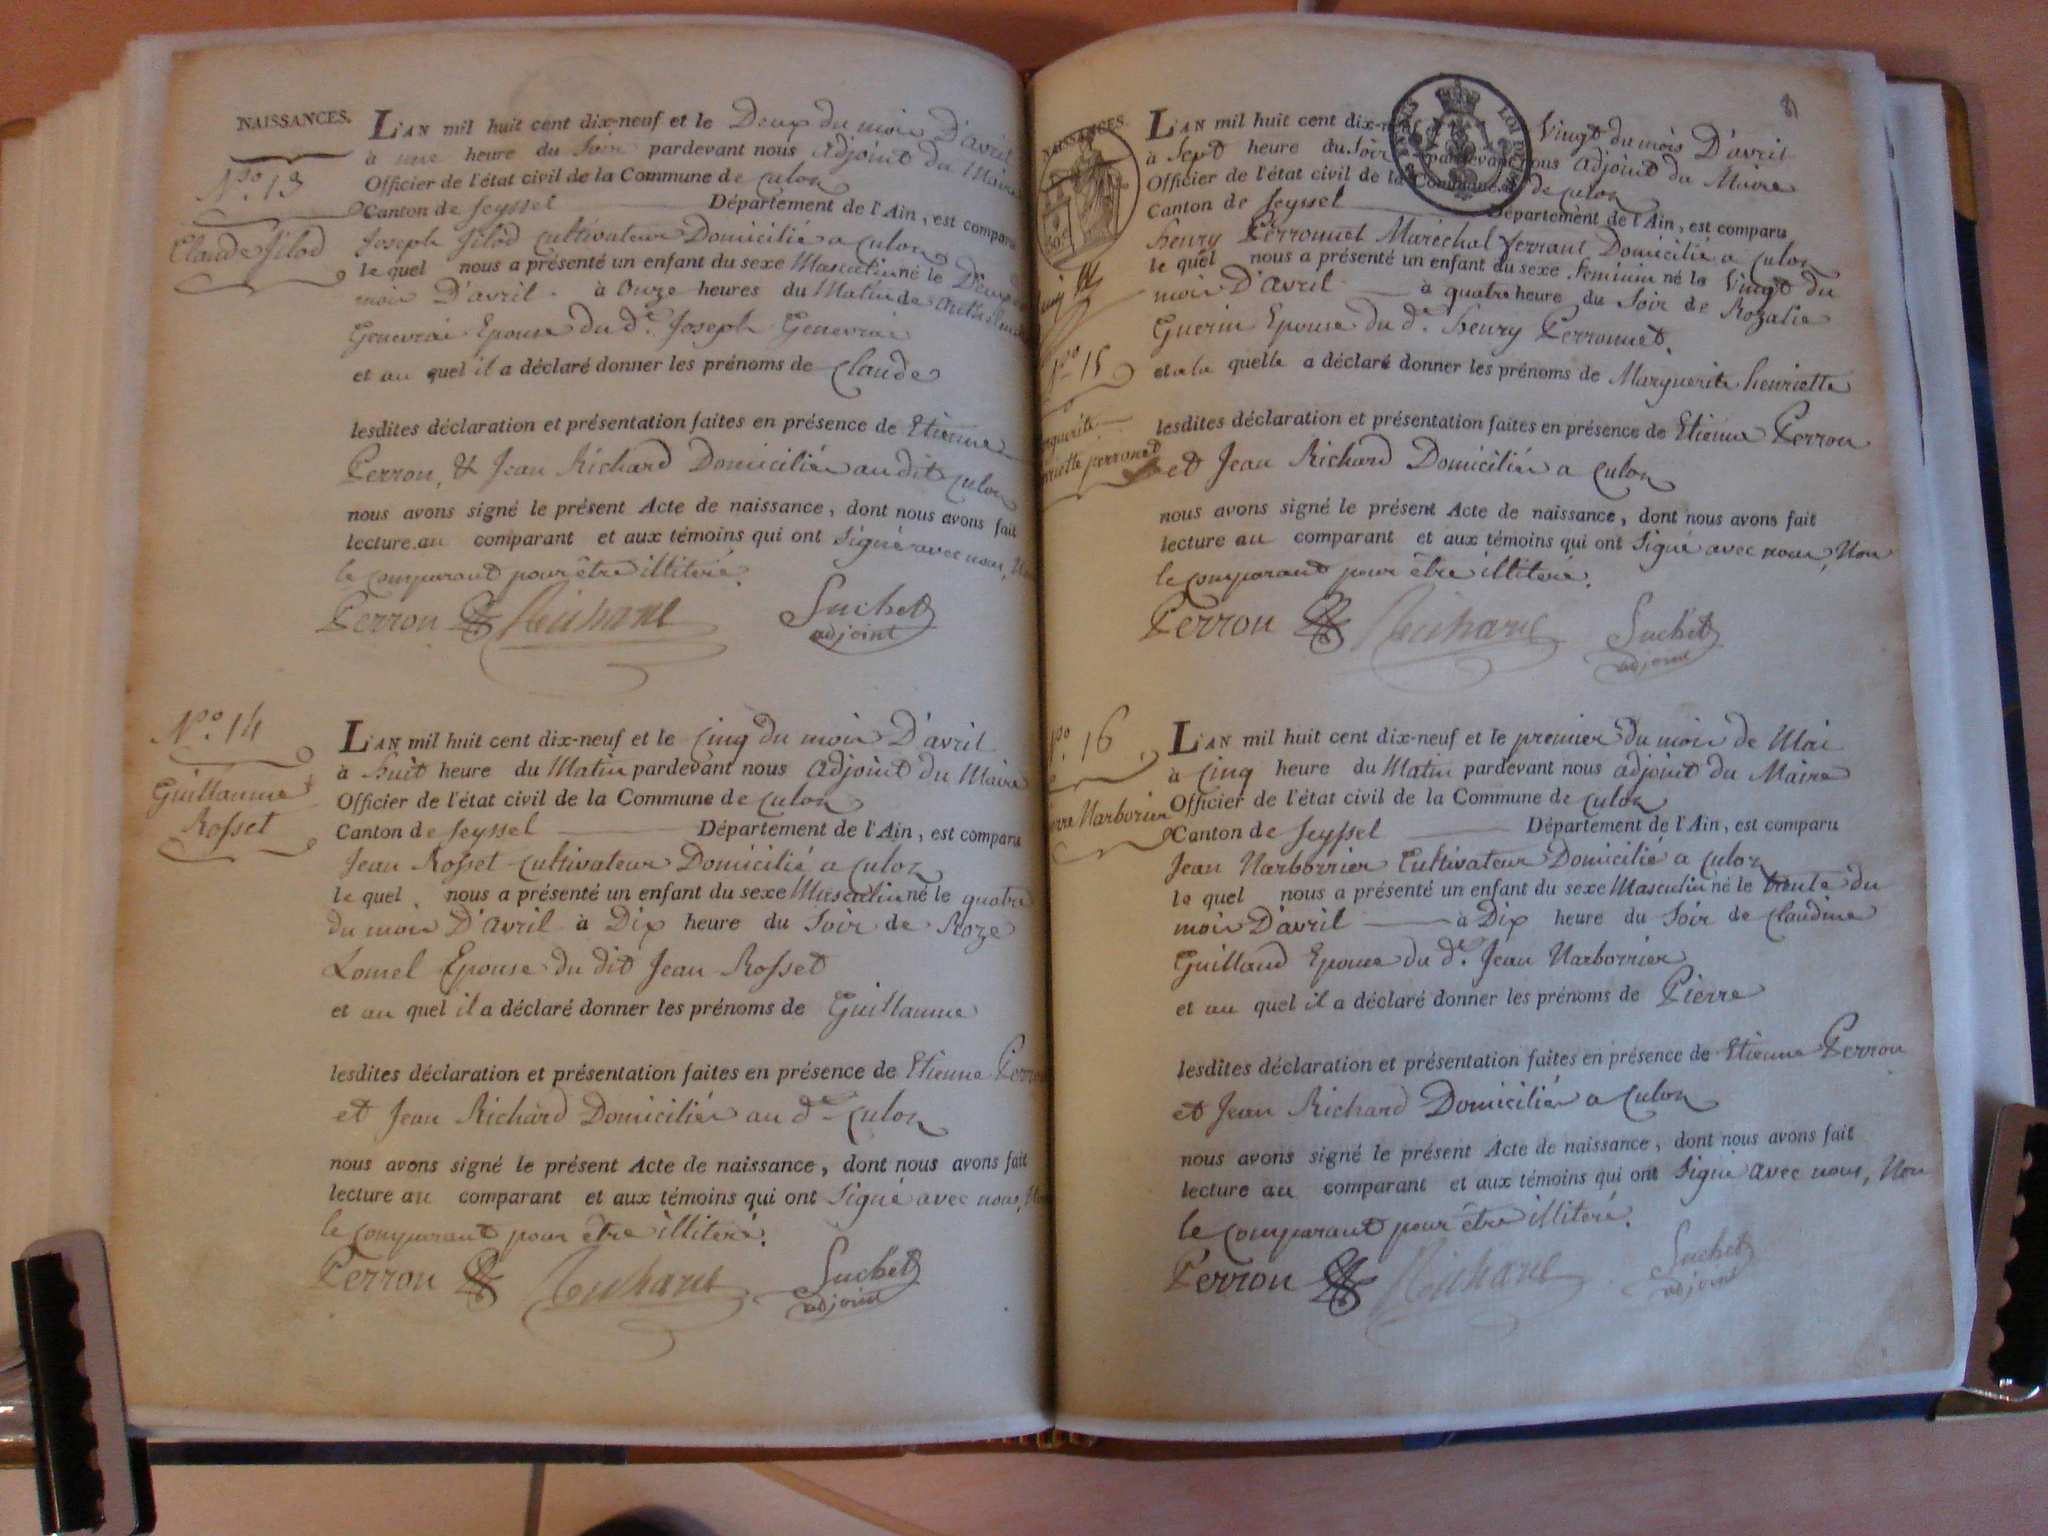 NAISSANCES.
N.º 13
Claude Jilod
L'AN mil huit cent dix-neuf et le Deux du mois D'avril
à une heure du Soir pardevant nous adjoint du Maire
Officier de l'état civil de la Commune de Culoz
Canton de Seyssel Département de l'Ain, est comparu
Joseph Jilod Cultivateur Domicilié a Culoz
le quel nous a présenté un enfant du sexe Masculin né le Deux
mois D'avril à Onze heures du Matin de
Genevrai Epouse du d.t Joseph Genevrai
et au quel il a déclaré donner les prénoms de Claude
lesdites déclaration et présentation faites en présence de Etienne
Perron, & Jean Richard Domiciliés au dit Culoz
nous avons signé le présent Acte de naissance, dont nous avons fait
lecture au comparant et aux témoins qui ont Signé avec nous,
le comparant pour être illiteré.
Perron Richard Suchet
adjoint
N.º 14
Guillaume
Rosset
L'AN mil huit cent dix-neuf et le Cinq du mois D'avril
à huit heure du Matin pardevant nous adjoint du Maire
Officier de l'état civil de la Commune de Culoz
Canton de Seyssel Département de l'Ain, est comparu
Jean Rosset Cultivateur Domicilié a Culoz
le quel nous a présenté un enfant du sexe Masculin né le quatre
du mois D'avril à Dix heure du Soir de Roze
Lomel Epouse du dit Jean Rosset
et au quel il a déclaré donner les prénoms de Guillaume
lesdites déclaration et présentation faites en présence de Etienne Perron
et Jean Richard Domiciliés au d.t Culoz
nous avons signé le présent Acte de naissance, dont nous avons fait
lecture au comparant et aux témoins qui ont Signé avec nous,
le comparant pour être illiteré.
Perron Richard Suchet
adjoint
NAISSANCES.
N.º 15
perronet
L'AN mil huit cent dix-neuf Vingt du mois D'avril
à Sept heure du Soir pardevant nous adjoint du Maire
Officier de l'état civil de la Commune de Culoz
Canton de Seyssel Département de l'Ain, est comparu
henry Perronnet Maréchal ferrant Domicilié a Culoz
le quel nous a présenté un enfant du sexe Feminin né le Vingt du
mois D'avril à quatre heure du Soir de Rozalie
Guerin Epouse du d.t henry Perronnet.
et a la quelle a déclaré donner les prénoms de Marguerite henriette
lesdites déclaration et présentation faites en présence de Etienne Perron
et Jean Richard Domiciliés a Culoz
nous avons signé le présent Acte de naissance, dont nous avons fait
lecture au comparant et aux témoins qui ont Signé avec nous, Non
le comparant pour être illiteré.
Perron Richard Suchet
adjoint
16
Narborrier
L'AN mil huit cent dix-neuf et le premier du mois de Mai
à Cinq heure du Matin pardevant nous adjoint du Maire
Officier de l'état civil de la Commune de Culoz
Canton de Seyssel Département de l'Ain, est comparu
Jean Narborrier Cultivateur Domicilié a Culoz
le quel nous a présenté un enfant du sexe Masculin né le trente du
mois D'avril à Dix heure du Soir de Claudine
Guillaud Epouse du d.t Jean Narborrier
et au quel il a déclaré donner les prénoms de Pierre
lesdites déclaration et présentation faites en présence de Etienne Perron
et Jean Richard Domiciliés a Culoz
nous avons signé le présent Acte de naissance, dont nous avons fait
lecture au comparant et aux témoins qui ont Signé avec nous, Non
le comparant pour être illiteré.
Perron Richard Suchet
adjoint